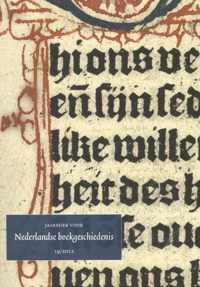 hions ve
en̄ sijn sed
like wille
heit des h
JAARBOEK VOOR
Nederlandse boekgeschiedenis
19/2012
se ou